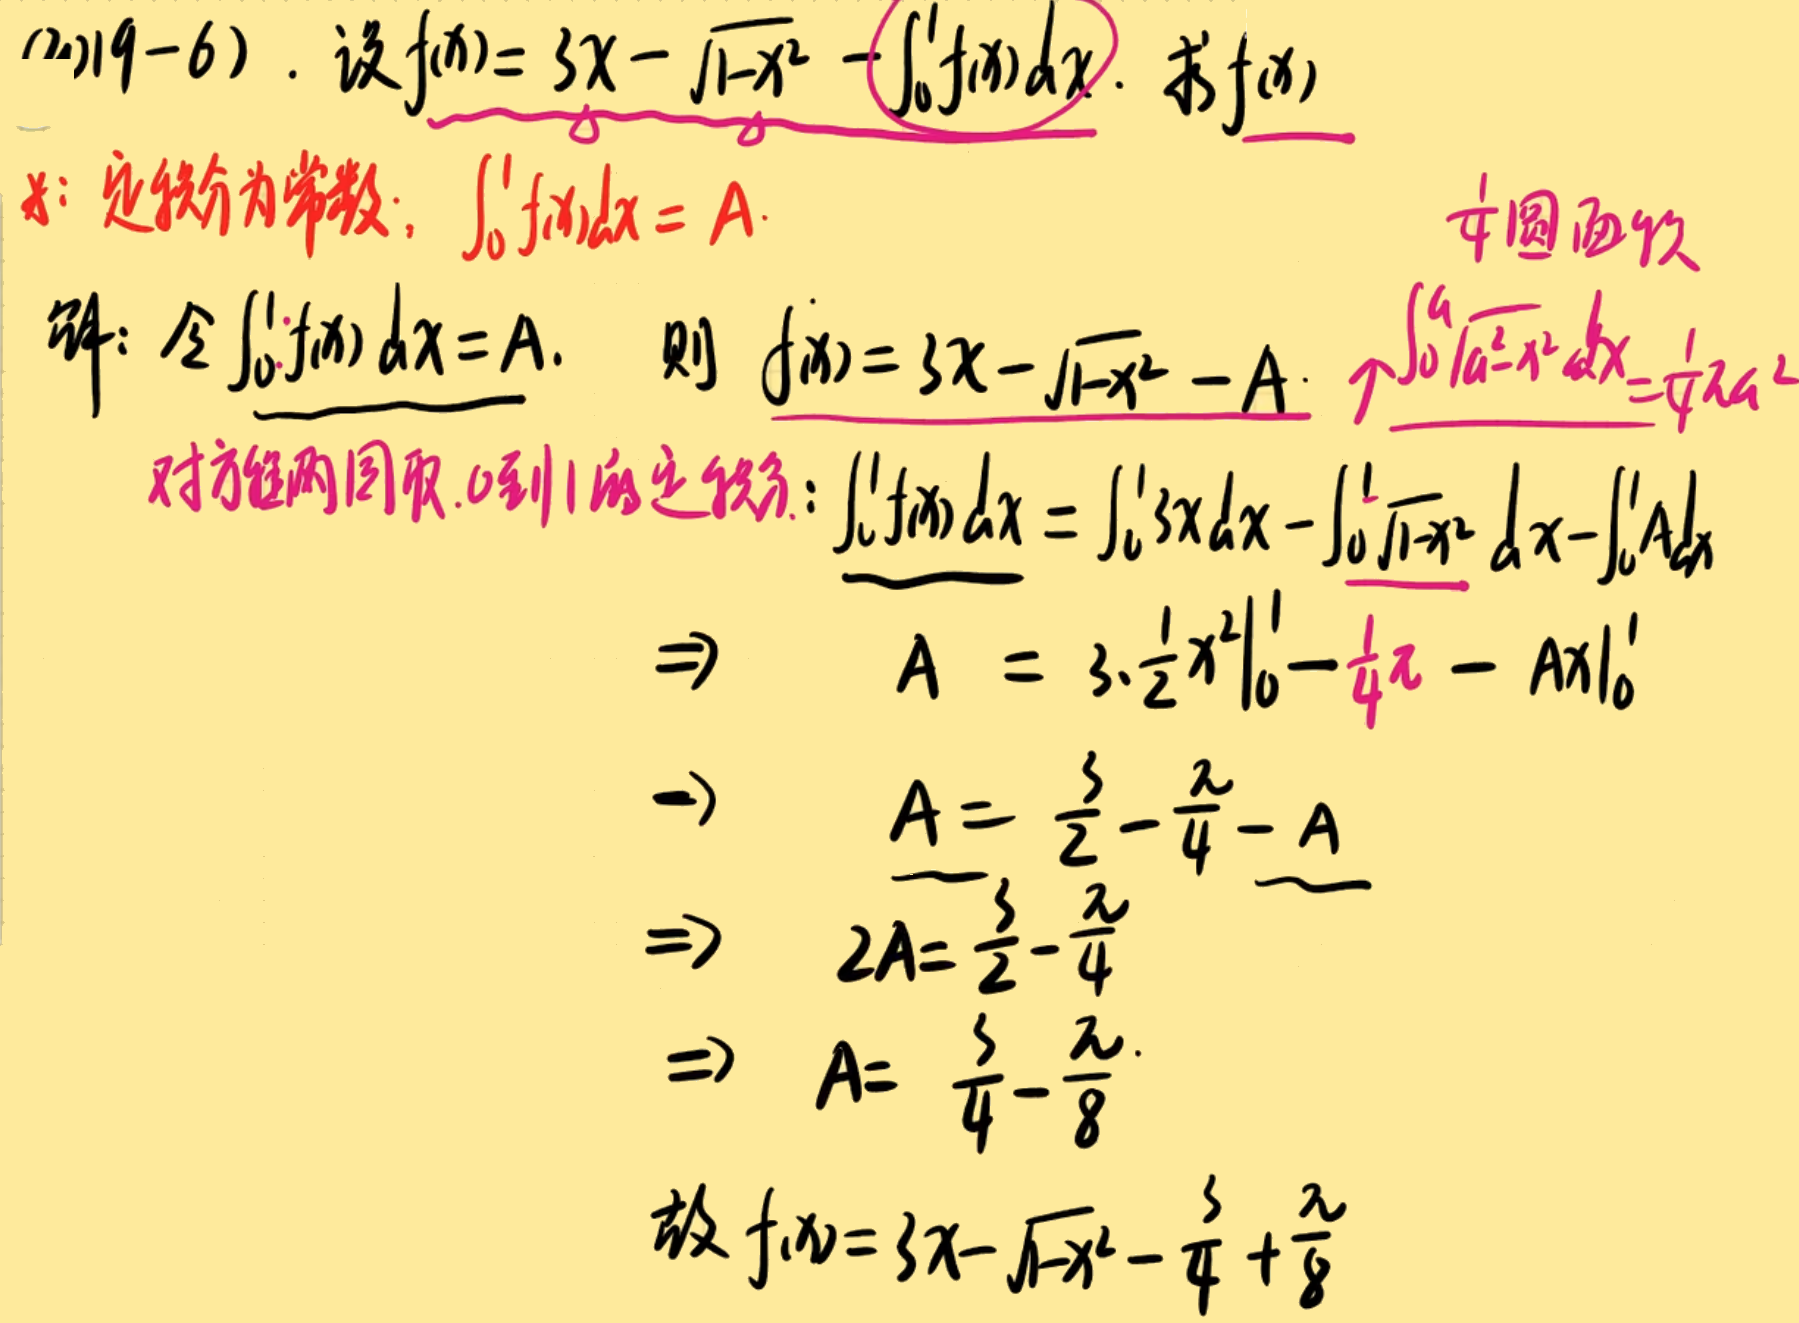 (2019-6). 设f(x)=3x-√(1-x²)-∫₀¹f(x)dx. 求f(x)
※: 定积分为常数; ∫₀¹f(x)dx=A.
¼圆面积
解: 令∫₀¹f(x)dx=A. 则 f(x)=3x-√(1-x²)-A. ↑∫₀ᵃ√(a²-x²)dx=¼πa²
对方程两同取.0到1的定积分: ∫₀¹f(x)dx=∫₀¹3xdx-∫₀¹√(1-x²)dx-∫₀¹Adx
⇒ A = 3·½x²|₀¹-¼π-Ax|₀¹
→ A=3/2-π/4-A
⇒ 2A=3/2-π/4
⇒ A=3/4-π/8.
故f(x)=3x-√(1-x²)-3/4+π/8